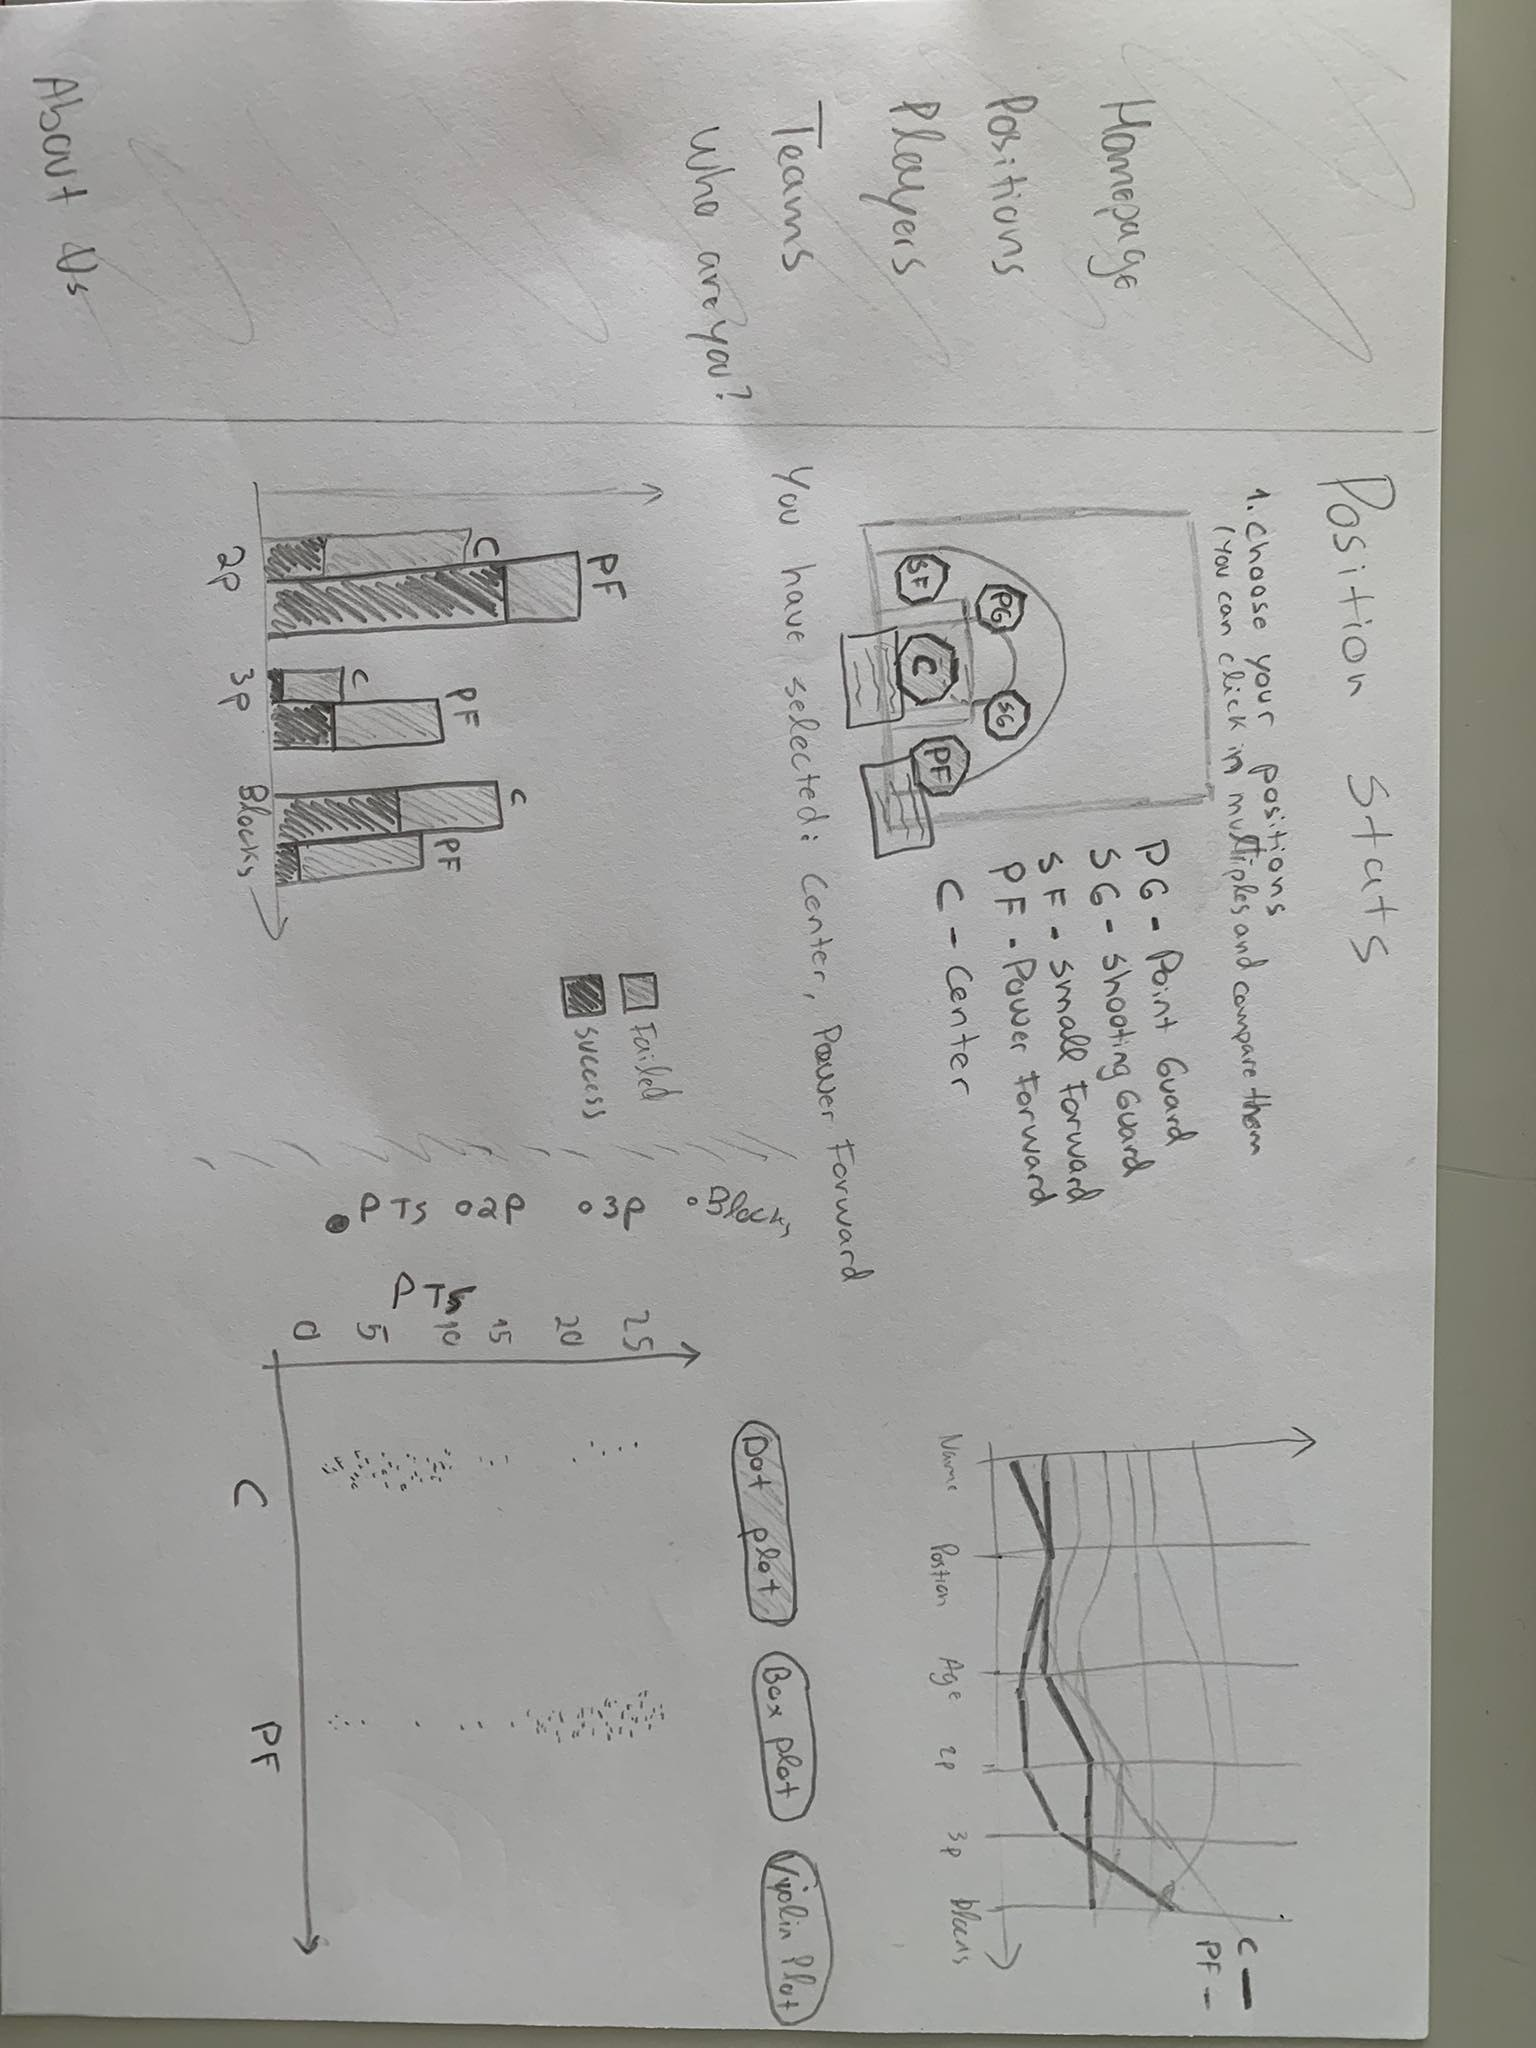 Homepage
Positions
Players
Teams
Who are you?
About Us
Position Stats
1. Choose your positions
(You can click in multiples and compare them
SF
PG
C
SG
PF
PG - Point Guard
SG - Shooting Guard
SF - Small Forward
PF - Power Forward
C - Center
You have selected: Center, Power Forward
C
PF
C
PF
C
PF
2P
3P
Blocks
Failed
Success
C
PF
Name
Postion
Age
2p
3p
PTS
2P
3P
Blocks
Dot plot
Box plot
Violin Plot
PTS
25
20
15
10
5
0
C
PF